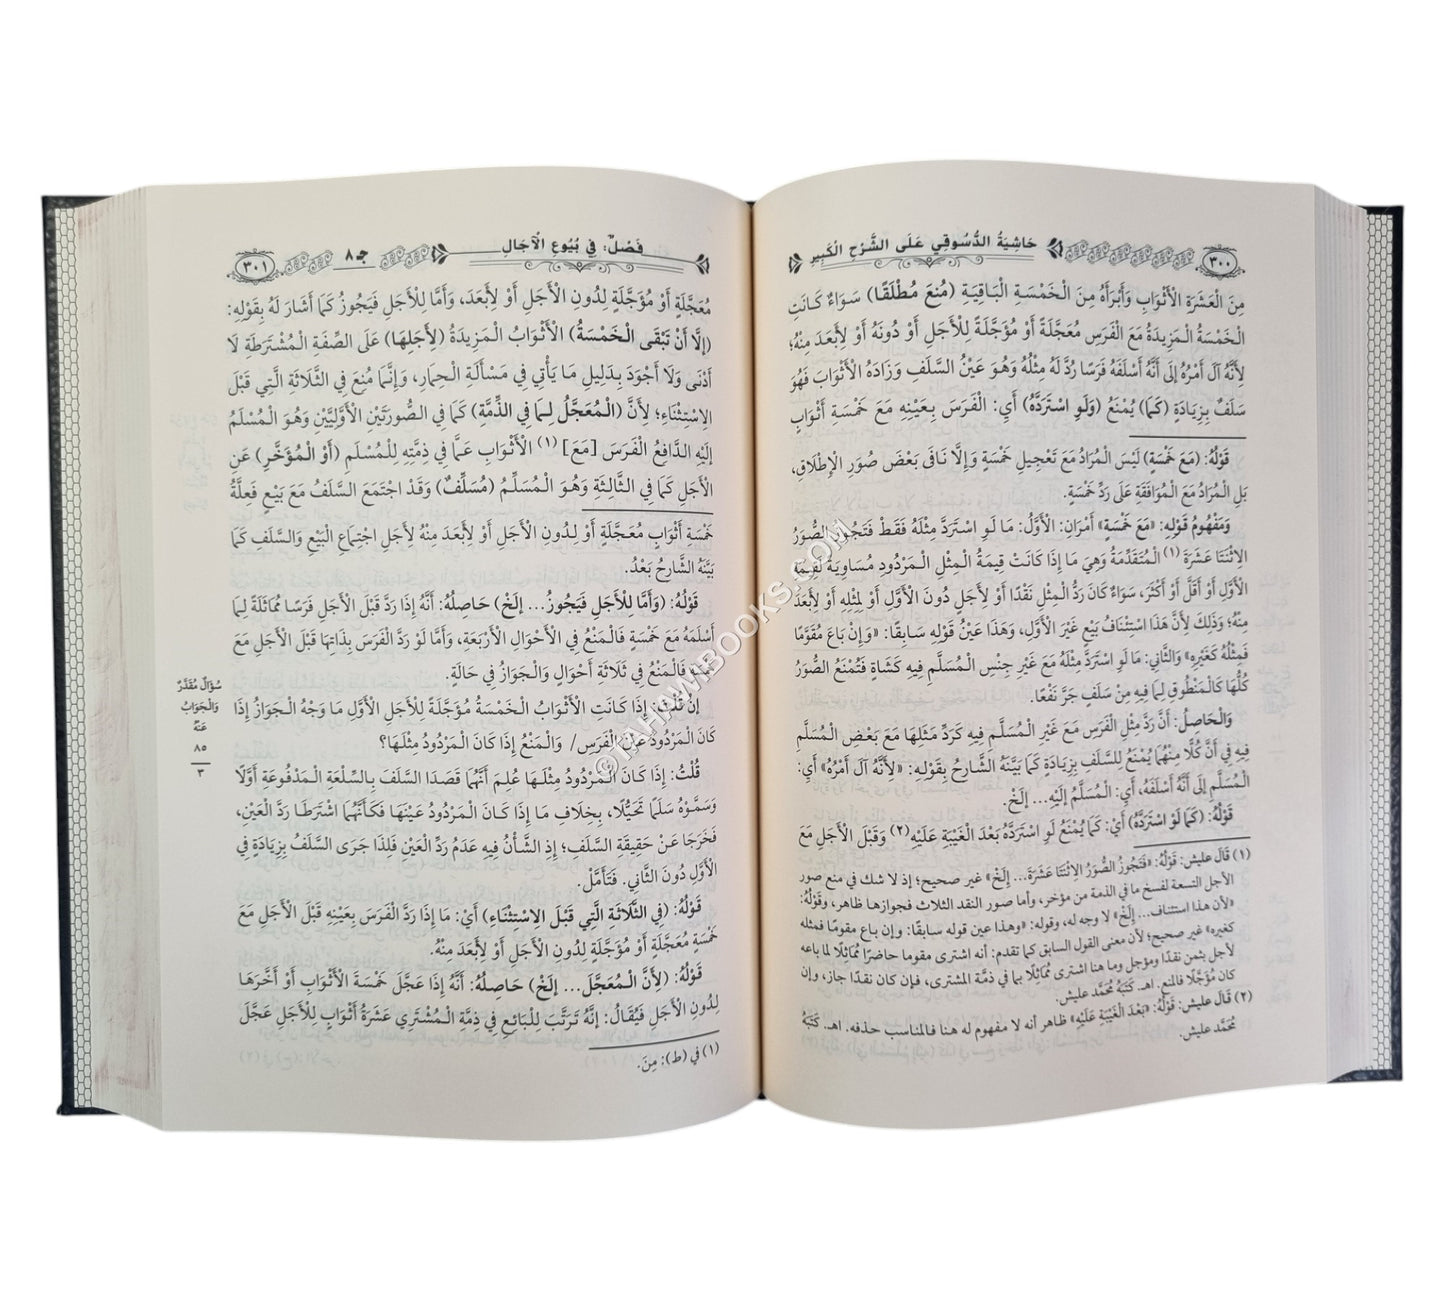 ٣٠٠
حَاشِيَةُ الدُّسُوقِي عَلَى الشَّرْحِ الْكَبِيرِ
مِنَ الْعَشَرَةِ الْأَثْوَابِ وَأَبْرَأَهُ مِنَ الْخَمْسَةِ الْبَاقِيَةِ (مُنِعَ مُطْلَقًا) سَوَاءٌ كَانَتِ
الْخَمْسَةُ الْمَزِيدَةُ مَعَ الْفَرَسِ مُعَجَّلَةً أَوْ مُؤَجَّلَةً لِلْأَجَلِ أَوْ دُونَهُ أَوْ لِأَبْعَدَ مِنْهُ؛
لِأَنَّهُ آلَ أَمْرُهُ إِلَى أَنَّهُ أَسْلَفَهُ فَرَسًا رُدَّ لَهُ مِثْلُهُ وَهُوَ عَيْنُ السَّلَفِ وَزَادَهُ الْأَثْوَابَ فَهُوَ
سَلَفٌ بِزِيَادَةٍ (كَمَا) يُمْنَعُ (وَلَوِ اسْتَرَدَّهُ) أَيْ: الْفَرَسَ بِعَيْنِهِ مَعَ خَمْسَةِ أَثْوَابٍ
قَوْلُهُ: (مَعَ خَمْسَةٍ) لَيْسَ الْمُرَادُ مَعَ تَعْجِيلِ خَمْسَةٍ وَإِلَّا نَافَى بَعْضَ صُوَرِ الْإِطْلَاقِ،
بَلِ الْمُرَادُ مَعَ الْمُوَافَقَةِ عَلَى رَدِّ خَمْسَةٍ.
وَمَفْهُومُ قَوْلِهِ: «مَعَ خَمْسَةٍ» أَمْرَانِ: الْأَوَّلُ: مَا لَوِ اسْتَرَدَّ مِثْلَهُ فَقَطْ فَتَجُوزُ الصُّوَرُ
الِاثْنَتَا عَشْرَةَ (١) الْمُتَقَدِّمَةُ وَهِيَ مَا إِذَا كَانَتْ قِيمَةُ الْمِثْلِ الْمَرْدُودِ مُسَاوِيَةً لِقِيمَةِ
الْأَوَّلِ أَوْ أَقَلَّ أَوْ أَكْثَرَ، سَوَاءٌ كَانَ رَدُّ الْمِثْلِ نَقْدًا أَوْ لِأَجَلٍ دُونَ الْأَوَّلِ أَوْ لِمِثْلِهِ أَوْ لِأَبْعَدَ
مِنْهُ؛ وَذَلِكَ لِأَنَّ هَذَا اسْتِئْنَافُ بَيْعٍ غَيْرِ الْأَوَّلِ، وَهَذَا عَيْنُ قَوْلِهِ سَابِقًا: «وَإِنْ بَاعَ مُقَوَّمًا
فَمِثْلُهُ كَغَيْرِهِ» وَالثَّانِي: مَا لَوِ اسْتَرَدَّ مِثْلَهُ مَعَ غَيْرِ جِنْسِ الْمُسَلَّمِ فِيهِ كَشَاةٍ فَتُمْنَعُ الصُّوَرُ
كُلُّهَا كَالْمَنْطُوقِ لِمَا فِيهِ مِنْ سَلَفٍ جَرَّ نَفْعًا.
وَالْحَاصِلُ: أَنَّ رَدَّ مِثْلِ الْفَرَسِ مَعَ غَيْرِ الْمُسَلَّمِ فِيهِ كَرَدِّ مَثَلِهَا مَعَ بَعْضِ الْمُسَلَّمِ
فِيهِ فِي أَنَّ كُلًّا مِنْهُمَا يُمْنَعُ لِلسَّلَفِ بِزِيَادَةٍ كَمَا بَيَّنَهُ الشَّارِحُ بِقَوْلِهِ: «لِأَنَّهُ آلَ أَمْرُهُ» أَيْ:
الْمُسَلَّمُ إِلَى أَنَّهُ أَسْلَفَهُ، أَيْ: الْمُسَلَّمُ إِلَيْهِ... إِلَخْ.
قَوْلُهُ: (كَمَا لَوِ اسْتَرَدَّهُ) أَيْ: كَمَا يُمْنَعُ لَوِ اسْتَرَدَّهُ بَعْدَ الْغَيْبَةِ عَلَيْهِ(٢) وَقَبْلَ الْأَجَلِ مَعَ
(١) قَالَ عليش: قَوْلُهُ: «فَتَجُوزُ الصُّوَرُ الِاثْنَتَا عَشْرَةَ... إِلَخْ» غير صحيح؛ إذ لا شك في منع صور
الأجل التسعة لفسخ ما في الذمة من مؤخر، وأما صور النقد الثلاث فجوازها ظاهر، وقَوْلُهُ:
«لأن هذا استئناف... إِلَخْ» لا وجه له، وقوله: «وهذا عين قوله سابقًا: وإن باع مقومًا فمثله
كغيره» غير صحيح؛ لأن معنى القول السابق كما تقدم: أنه اشترى مقوما حاضرًا مُمَاثِلًا لما باعه
لأجل بثمن نقدًا ومؤجل وما هنا اشترى مُمَاثِلًا بما في ذمَّة المشتري، فإن كان نقدًا جاز، وإن
كان مُؤَجَّلًا فالمنع. اهـ كَتَبَهُ مُحَمَّد عليش.
(٢) قَالَ عليش: قَوْلُهُ: «بَعْدَ الْغَيْبَةِ عَلَيْهِ» ظاهر أنه لا مفهوم له هنا فالمناسب حذفه. اهـ كَتَبَهُ
مُحَمَّد عليش.
فَصْلٌ: فِي بُيُوعِ الْآجَالِ
جـ ٨
٣٠١
مُعَجَّلَةٍ أَوْ مُؤَجَّلَةٍ لِدُونِ الْأَجَلِ أَوْ لِأَبْعَدَ، وَأَمَّا لِلْأَجَلِ فَيَجُوزُ كَمَا أَشَارَ لَهُ بِقَوْلِهِ:
(إِلَّا أَنْ تَبْقَى الْخَمْسَةُ) الْأَثْوَابُ الْمَزِيدَةُ (لِأَجَلِهَا) عَلَى الصِّفَةِ الْمُشْتَرَطَةِ لَا
أَدْنَى وَلَا أَجْوَدَ بِدَلِيلِ مَا يَأْتِي فِي مَسْأَلَةِ الْحِمَارِ، وَإِنَّمَا مُنِعَ فِي الثَّلَاثَةِ الَّتِي قَبْلَ
الِاسْتِثْنَاءِ؛ لِأَنَّ (الْمُعَجَّلَ لِمَا فِي الذِّمَّةِ) كَمَا فِي الصُّورَتَيْنِ الْأُولَيَيْنِ وَهُوَ الْمُسْلَمُ
إِلَيْهِ الدَّافِعُ الْفَرَسَ [مَعَ] (١) الْأَثْوَابِ عَمَّا فِي ذِمَّتِهِ لِلْمُسْلِمِ (أَوِ الْمُؤَخَّرِ) عَنِ
الْأَجَلِ كَمَا فِي الثَّالِثَةِ وَهُوَ الْمُسَلِّمُ (مُسَلِّفٌ) وَقَدْ اجْتَمَعَ السَّلَفُ مَعَ بَيْعٍ فَعِلَّةُ
خَمْسَةِ أَثْوَابٍ مُعَجَّلَةٍ أَوْ لِدُونِ الْأَجَلِ أَوْ لِأَبْعَدَ مِنْهُ لِأَجَلِ اجْتِمَاعِ الْبَيْعِ وَالسَّلَفِ كَمَا
بَيَّنَهُ الشَّارِحُ بَعْدُ.
قَوْلُهُ: (وَأَمَّا لِلْأَجَلِ فَيَجُوزُ... إِلَخْ) حَاصِلُهُ: أَنَّهُ إِذَا رَدَّ قَبْلَ الْأَجَلِ فَرَسًا مُمَاثَلَةً لِمَا
أَسْلَمَهُ مَعَ خَمْسَةٍ فَالْمَنْعُ فِي الْأَحْوَالِ الْأَرْبَعَةِ، وَأَمَّا لَوْ رَدَّ الْفَرَسَ بِذَاتِهَا قَبْلَ الْأَجَلِ مَعَ
خَمْسَةٍ فَالْمَنْعُ فِي ثَلَاثَةِ أَحْوَالٍ وَالْجَوَازُ فِي حَالَةٍ.
إِنْ قُلْتَ: إِذَا كَانَتِ الْأَثْوَابُ الْخَمْسَةُ مُؤَجَّلَةً لِلْأَجَلِ الْأَوَّلِ مَا وَجْهُ الْجَوَازُ إِذَا
كَانَ الْمَرْدُودُ عَيْنَ الْفَرَسِ/ وَالْمَنْعُ إِذَا كَانَ الْمَرْدُودُ مِثْلَهَا؟
سُؤَالٌ مُقَدَّرٌ
وَالْجَوَابُ
عَنْهُ
٨٥
٣
قُلْتُ: إِذَا كَانَ الْمَرْدُودُ مِثْلَهَا عُلِمَ أَنَّهُمَا قَصَدَا السَّلَفَ بِالسِّلْعَةِ الْمَدْفُوعَةِ أَوَّلًا
وَسَمَّوْهُ سَلَمًا تَحَيُّلًا، بِخِلَافِ مَا إِذَا كَانَ الْمَرْدُودُ عَيْنَهَا فَكَأَنَّهُمَا اشْتَرَطَا رَدَّ الْعَيْنِ،
فَخَرَجَا عَنْ حَقِيقَةِ السَّلَفِ؛ إِذِ الشَّأْنُ فِيهِ عَدَمُ رَدِّ الْعَيْنِ فَلِذَا جَرَى السَّلَفُ بِزِيَادَةٍ فِي
الْأَوَّلِ دُونَ الثَّانِي. فَتَأَمَّلْ.
قَوْلُهُ: (فِي الثَّلَاثَةِ الَّتِي قَبْلَ الِاسْتِثْنَاءِ) أَيْ: مَا إِذَا رَدَّ الْفَرَسَ بِعَيْنِهِ قَبْلَ الْأَجَلِ مَعَ
خَمْسَةٍ مُعَجَّلَةٍ أَوْ مُؤَجَّلَةٍ لِدُونِ الْأَجَلِ أَوْ لِأَبْعَدَ مِنْهُ.
قَوْلُهُ: (لِأَنَّ الْمُعَجَّلَ... إِلَخْ) حَاصِلُهُ: أَنَّهُ إِذَا عَجَّلَ خَمْسَةَ الْأَثْوَابِ أَوْ أَخَّرَهَا
لِدُونِ الْأَجَلِ فَيُقَالُ: إِنَّهُ تَرَتَّبَ لِلْبَائِعِ فِي ذِمَّةِ الْمُشْتَرِي عَشَرَةُ أَثْوَابٍ لِلْأَجَلِ عَجَّلَ
(١) فِي (ط): مِنَ.
©TAHAWIBOOKS.COM